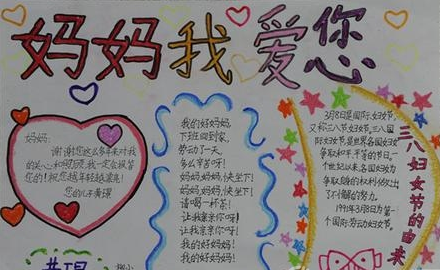 妈妈我爱您
妈妈:
谢谢您这么多年来对我
的关心和照顾,我一定会报答
您的!祝您越年轻越漂亮!
您的儿子黄璟
我的好妈妈,
下班回到家,
劳动了一天,
多么辛苦呀!
妈妈,妈妈,快坐下!
妈妈,妈妈,快坐下!
请喝一杯茶!
让我亲亲你呀!
让我亲亲你呀!
我的好妈妈!
我的好妈妈!
三八妇女节的由来
3月8日是国际妇女节,
又称三八节妇女节,三八国
际妇女节是世界各国妇女
争取和平、平等的节日,一
个世纪以来,各国妇女为
争取自身的权利做出
了不懈的努力。
个国际劳动妇女节
黄璟